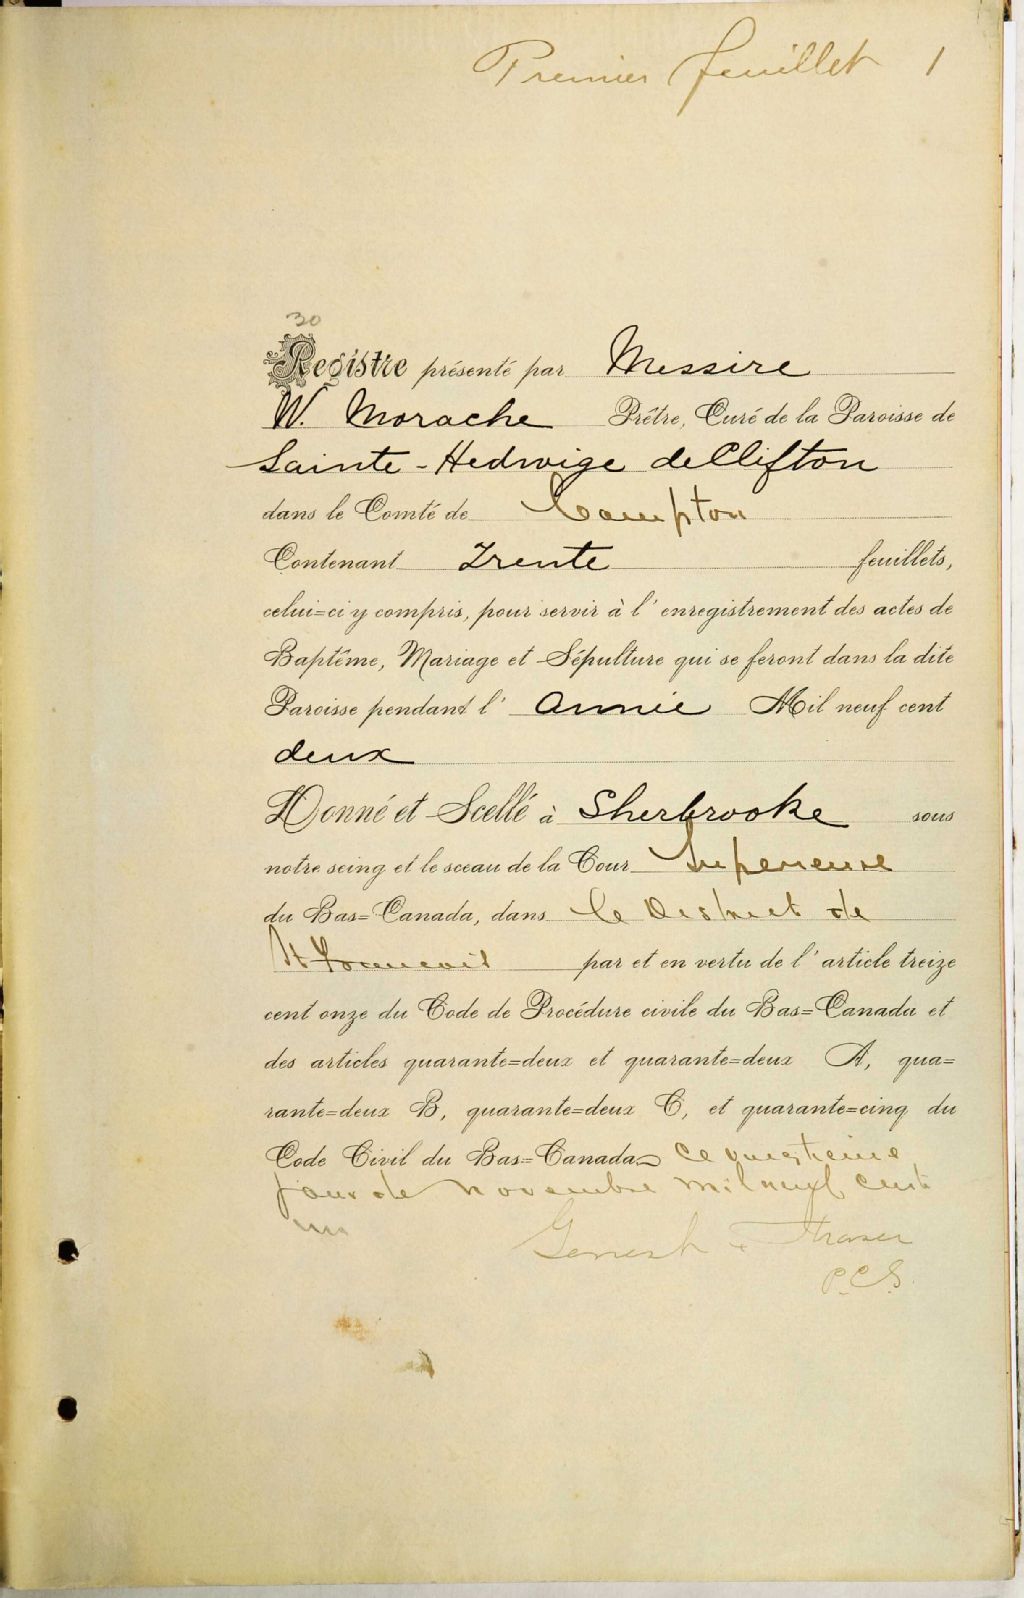 Premier feuillet 1
30
Registre présenté par Messire
W. Morache Prêtre, Curé de la Paroisse de
Sainte-Hedwige de Clifton
dans le Comté de Compton
Contenant Trente feuillets,
celui=ci y compris, pour servir à l'enregistrement des actes de
Baptême, Mariage et Sépulture qui se feront dans la dite
Paroisse pendant l'année Mil neuf cent
deux
Donné et Scellé à Sherbrooke sous
notre seing et le sceau de la Cour Superieure
du Bas=Canada, dans le District de
St Francois par et en vertu de l'article treize
cent onze du Code de Procédure civile du Bas=Canada et
des articles quarante=deux et quarante=deux A, qua=
rante=deux B, quarante=deux C, et quarante=cinq du
Code Civil du Bas=Canada ce
jour de novembre mil neuf cent
un
P.C.S.